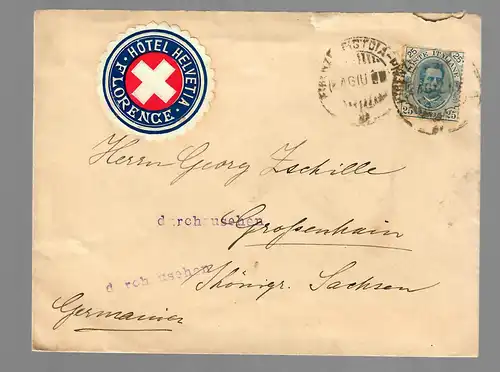 HOTEL HELVETIA
FLORENCE
POSTE ITALIANE
25 25
Herrn Georg Zschille
durchzusehen
Großenhain
durchzusehen
Königr. Sachsen
Germania